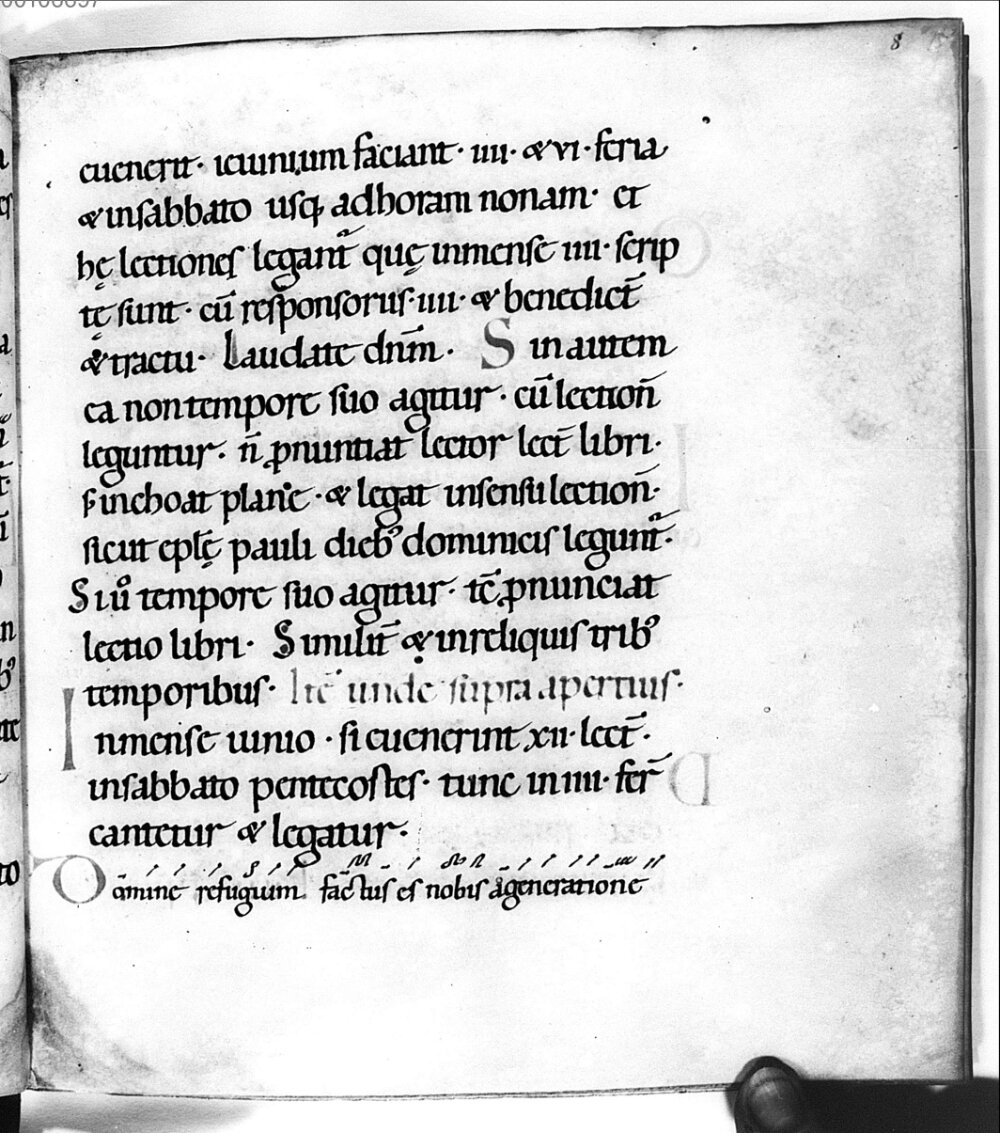 8
euenerit· ieiunium faciant· iiii· & vi· feria
& insabbato usq; adhoram nonam· et
hę lectiones legant̃ quę inmense iiii· scrip
tę sunt· cū responsoriis· iiii· & benedict̄
& tractu· Laudate dn̄m· Sin autem
ca nontempore suo agitur· cū lection̄
leguntur· n̄ ꝓnuntiat lector lect̄ libri·
s; inchoat plane· & legat insensu lection̄·
sicut epl̄ę pauli dieb; dominicis legunt̃·
Siū tempore suo agitur· tc̄ ꝓnunciat
lectio libri· Similit̄ & inreliquis trib;
temporibus· Itē unde supra apertius·
Inmense iunio· si euenerint xii· lect̄·
insabbato pentecostes· tunc in iiii· fer̄
cantetur & legatur·
Domine refugium factus es nobis ageneratione